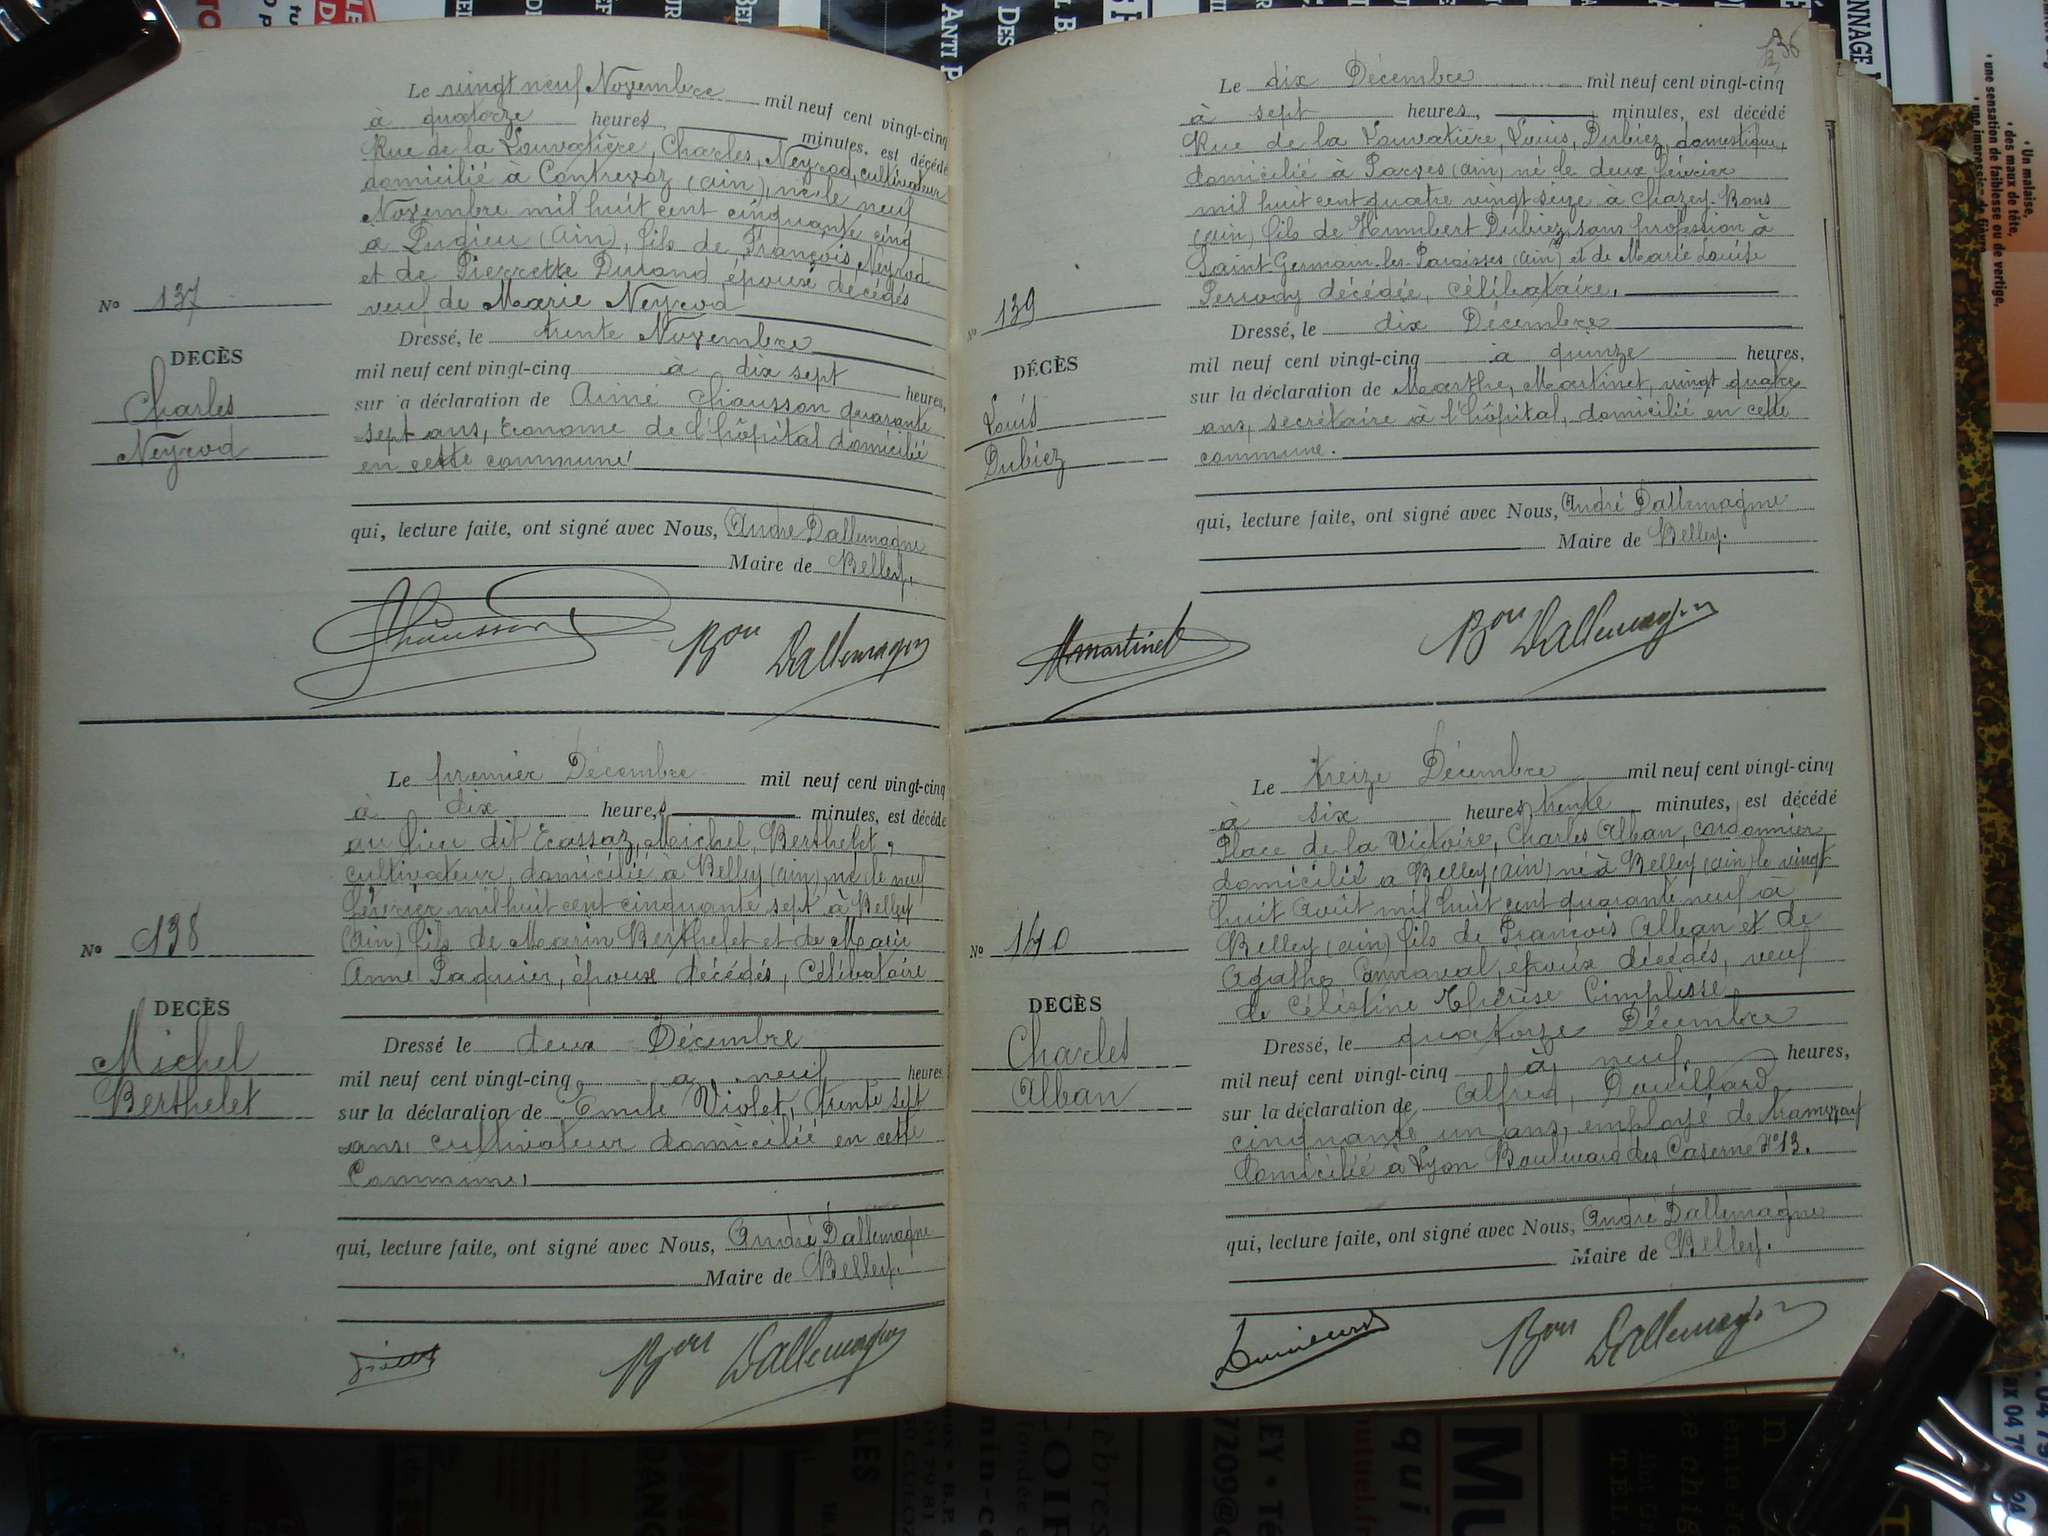 Le vingt neuf Novembre mil neuf cent vingt-cinq
à quatorze heures, minutes, est décédé
Rue de la Louvatière, Charles, Neyrod, cultivateur
domicilié à Contrevoz (ain), né le neuf
Novembre mil huit cent cinquante cinq
à Pugieu (Ain), fils de François Neyrod
et de Pierrette Durand époux décédés
veuf de Marie Neyrod
No 137
DECÈS
Charles
Neyrod
Dressé, le trente Novembre
mil neuf cent vingt-cinq à dix sept heures,
sur a déclaration de Aimé Chausson quarante
sept ans, Econome de l'hôpital domicilié
en cette commune
qui, lecture faite, ont signé avec Nous, André Dallemagne
Maire de Belley.
Chausson Bon Dallemagne
Le premier Décembre mil neuf cent vingt-cinq
à dix heures, minutes, est décédé
au lieu dit Ecassaz, Michel Berthelet,
cultivateur, domicilié à Belley (ain) né le neuf
février mil huit cent cinquante sept à Belley
(Ain) fils de Marin Berthelet et de Marie
Anne Paquier, époux décédés, Célibataire
No 138
DECÈS
Michel
Berthelet
Dressé le deux Décembre
mil neuf cent vingt-cinq, à neuf heures
sur la déclaration de Emile Violet, trente sept
ans, cultivateur domicilié en cette
Commune,
qui, lecture faite, ont signé avec Nous, André Dallemagne
Maire de Belley.
Violet Bon Dallemagne
136
Le dix Décembre mil neuf cent vingt-cinq
à sept heures, minutes, est décédé
Rue de la Louvatière, Louis, Dubiez, domestique,
domicilié à Parves (ain) né le deux février
mil huit cent quatre vingt seize à Chazey-Bons
(ain) fils de Humbert Dubiez, sans profession à
Saint-Germain-les-Paroisses (ain) et de Marie Louise
décédée, célibataire,
No 139
DÉCÈS
Louis
Dubiez
Dressé, le dix Décembre
mil neuf cent vingt-cinq à quinze heures,
sur la déclaration de Marthe, Martinet, vingt quatre
ans, secrétaire à l'hôpital, domicilié en cette
commune.
qui, lecture faite, ont signé avec Nous, André Dallemagne
Maire de Belley.
M. Martinet Bon Dallemagne
Le treize Décembre mil neuf cent vingt-cinq
à six heures, trente minutes, est décédé
Place de la Victoire, Charles Alban, cordonnier
domicilié à Belley (ain) né à Belley (ain) le vingt
huit Août mil huit cent quarante neuf à
Belley (ain) fils de François Alban et de
Agathe Cannaval, époux décédés, veuf
de Célestine Thérèse Cimplesse
No 140
DECÈS
Charles
Alban
Dressé, le quatorze Décembre
mil neuf cent vingt-cinq à neuf heures,
sur la déclaration de Alfred, Douillard
cinquante un ans, employé de tramway
domicilié à Lyon Boulevard des Caserne No 13.
qui, lecture faite, ont signé avec Nous, André Dallemagne
Maire de Belley.
Bon Dallemagne
• Un malaise,
• des maux de tête,
• une sensation de faiblesse ou de vertige,